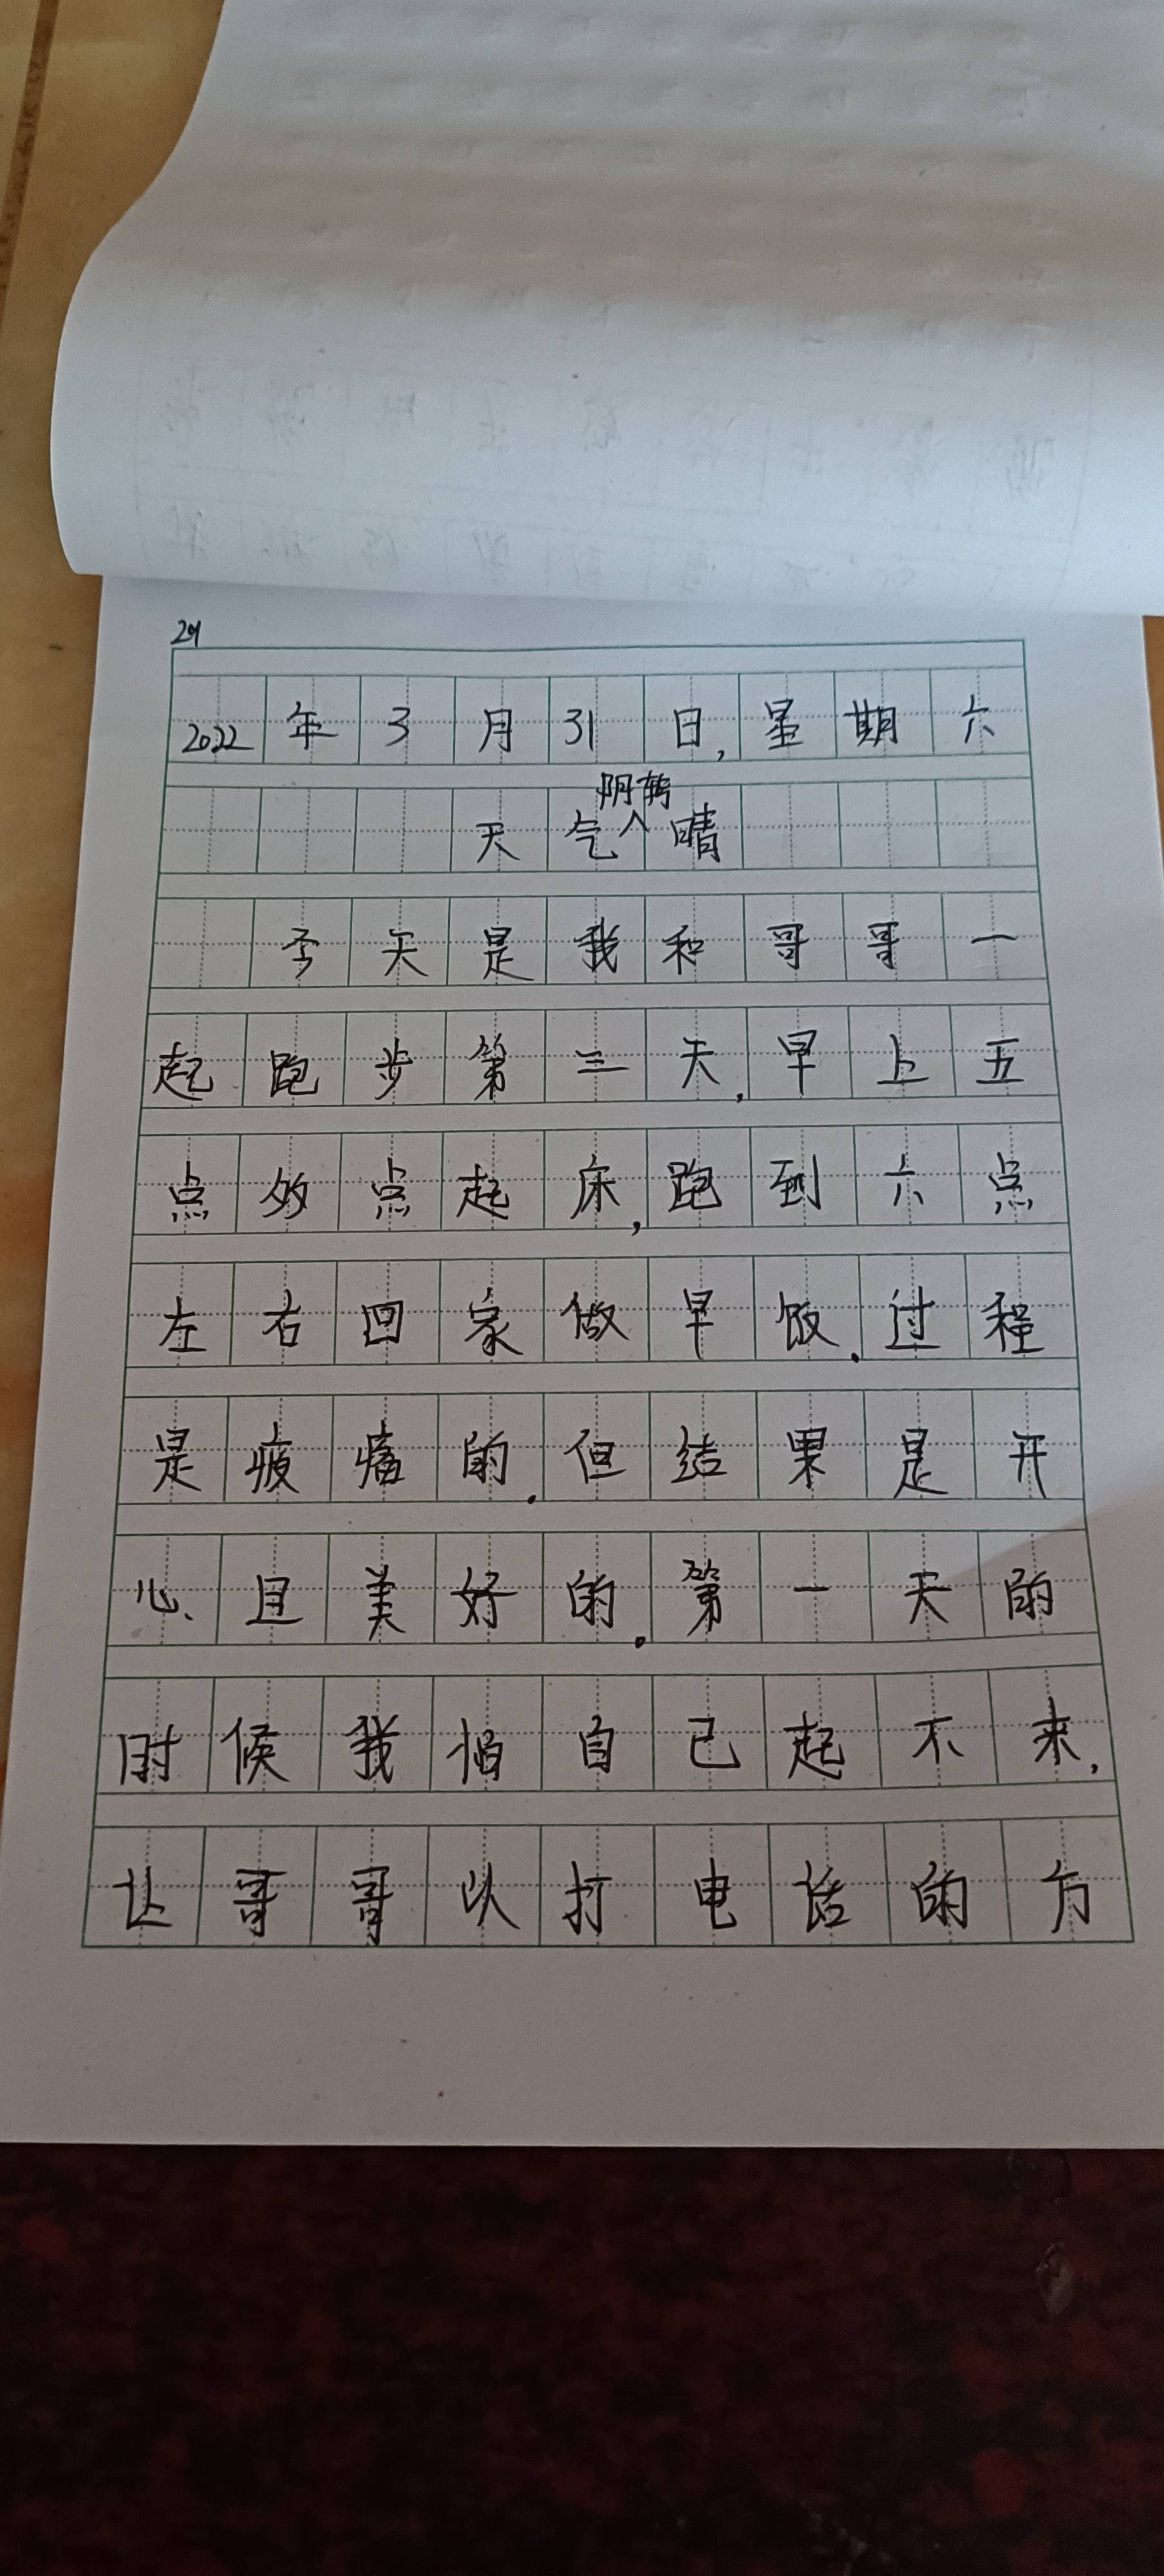 2022年3月31日,星期六
阴转
天气∧晴
今天是我和哥哥一
起跑步第三天,早上五
点多点起床,跑到六点
左右回家做早饭.过程
是疲痛的.但结果是开
心且美好的.第一天的
时候我怕自己起不来,
让哥哥以打电话的方